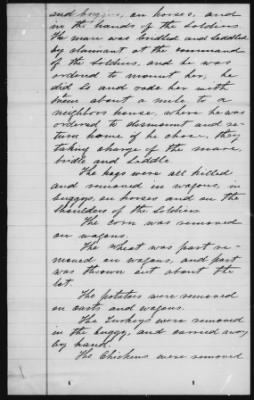 and buggies, on horses, and
in the hands of the soldiers
The mare was bridled and saddled
by claimant at the command
of the soldiers, and he was
ordered to mount her; he
did so and rode her with
them about a mile to a
neighbors house, where he was
ordered to dismount and re-
turn home if he chose, they
taking charge of the mare,
bridle and saddle.
The hogs were all killed
and removed in wagons, in
buggys, on horses and on the
shoulders of the soldiers
The corn was removed
on wagons.
The wheat was part re-
moved on wagons, and part
was thrown out about the
lot.
The potatoes were removed
on carts and wagons.
The Turkeys were removed
in the buggy, and carried away
by hand.
The Chickens were removed